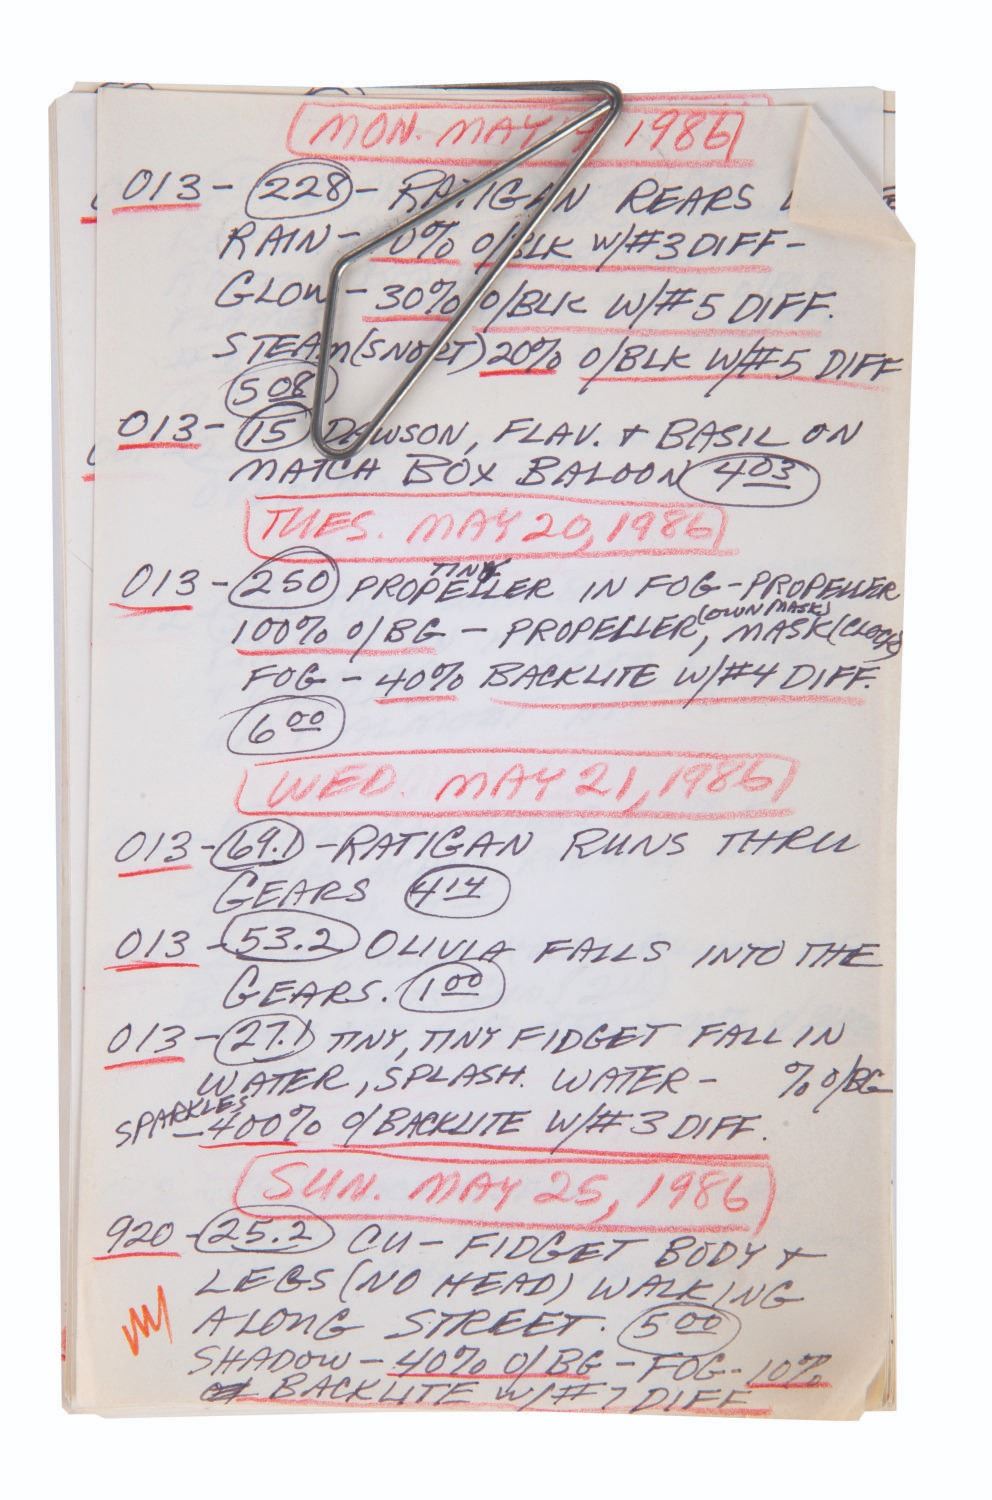 MON. MAY 1986
013 - 228 - RATIGAN REARS
RAIN - 10% O/BLK W/#3 DIFF -
GLOW - 30% O/BLK W/#5 DIFF.
STEAM (SNORT) 20% O/BLK W/#5 DIFF
5 08
013 - 15 DAWSON, FLAV. + BASIL ON
MATCH BOX BALOON 4 03
TUES. MAY 20, 1986
TINY
013 - 250 PROPELLER IN FOG - PROPELLER
(OWN MASK)
100% O/BG - PROPELLER, MASK (CLOCK)
FOG - 40% BACKLITE W/#4 DIFF.
6 00
WED. MAY 21, 1986
013 - 69.1 - RATIGAN RUNS THRU
GEARS 4 14
013 - 53.2 OLIVIA FALLS INTO THE
GEARS. 1 00
013 - 27.1 TINY, TINY FIDGET FALL IN
WATER, SPLASH. WATER - % O/BG
SPARKLES - 400% O/BACKLITE W/#3 DIFF.
SUN. MAY 25, 1986
920 - 25.2 CU - FIDGET BODY +
LEGS (NO HEAD) WALKING
ALONG STREET. 5 00
SHADOW - 40% O/BG - FOG - 10%
BACKLITE W/#7 DIFF